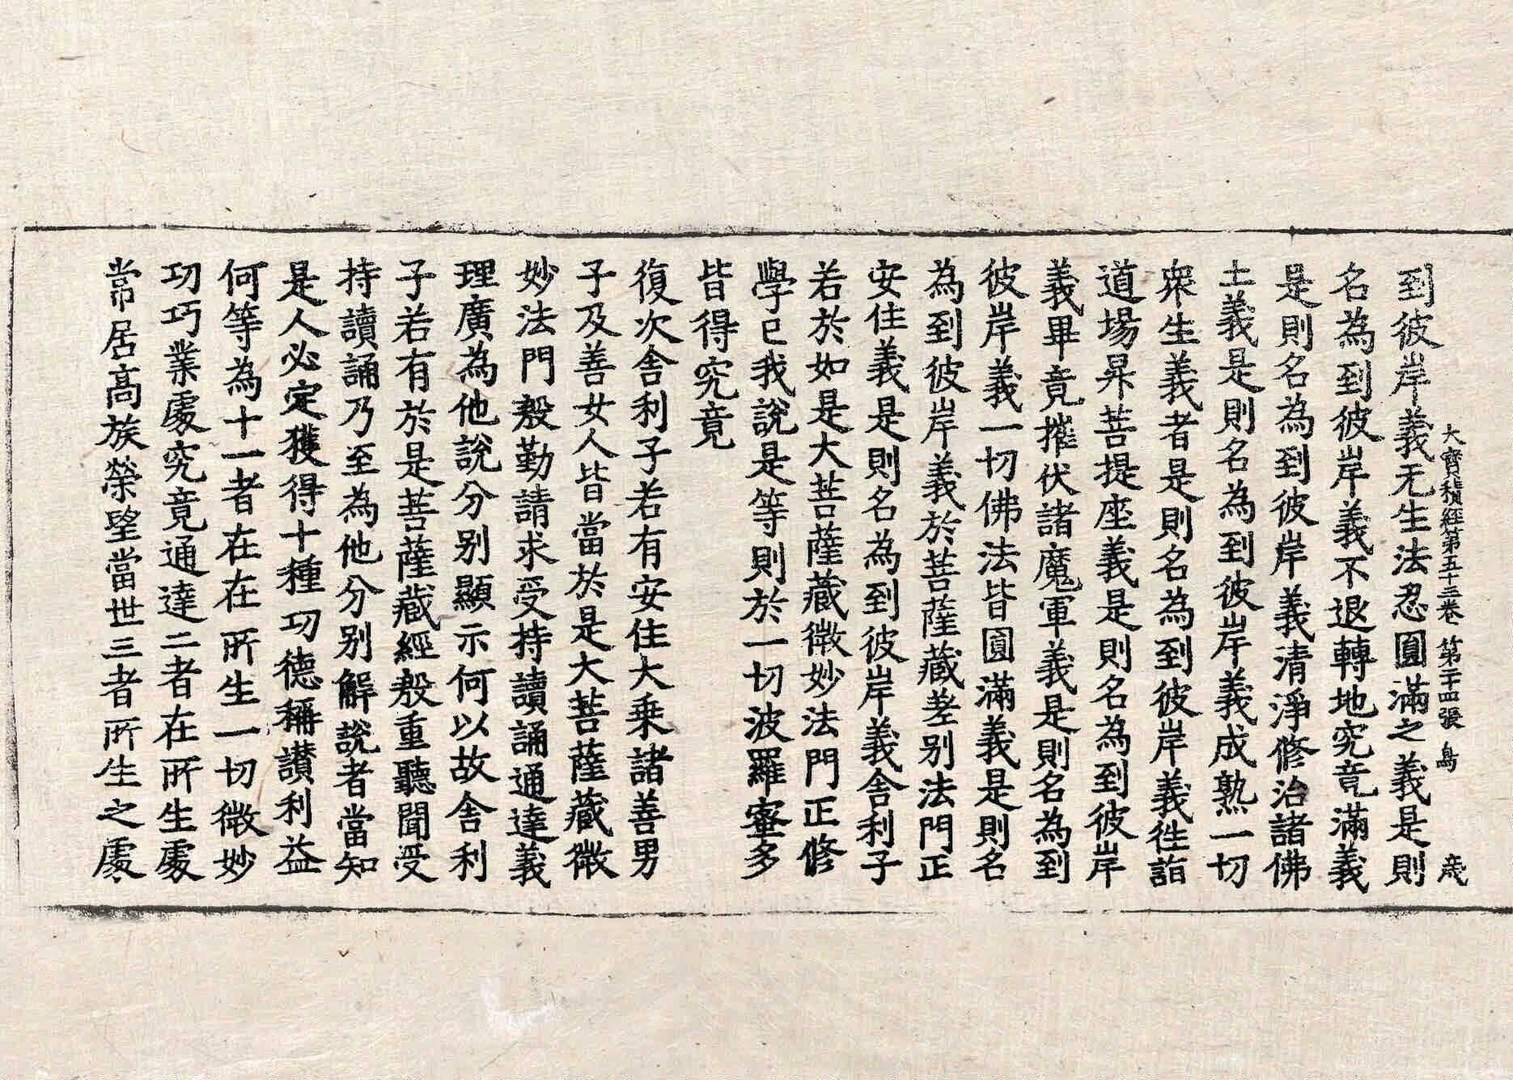 大寶積經第五十三卷 第二十四張 鳥 㦯
到彼岸義无生法忍圓滿之義是則
名為到彼岸義不退轉地究竟滿義
是則名為到彼岸義清淨修治諸佛
土義是則名為到彼岸義成熟一切
衆生義者是則名為到彼岸義往詣
道場昇菩提座義是則名為到彼岸
義畢竟摧伏諸魔軍義是則名為到
彼岸義一切佛法皆圓滿義是則名
為到彼岸義於菩薩藏差别法門正
安住義是則名為到彼岸義舍利子
若於如是大菩薩藏微妙法門正修
學已我說是等則於一切波羅蜜多
皆得究竟
復次舍利子若有安住大乘諸善男
子及善女人皆當於是大菩薩藏微
妙法門慇勤請求受持讀誦通達義
理廣為他說分别顯示何以故舍利
子若有於是菩薩藏經慇重聽聞受
持讀誦乃至為他分别解說者當知
是人必定獲得十種功德稱讃利益
何等為十一者在在所生一切微妙
功巧業處究竟通達二者在所生處
常居高族榮望當世三者所生之處